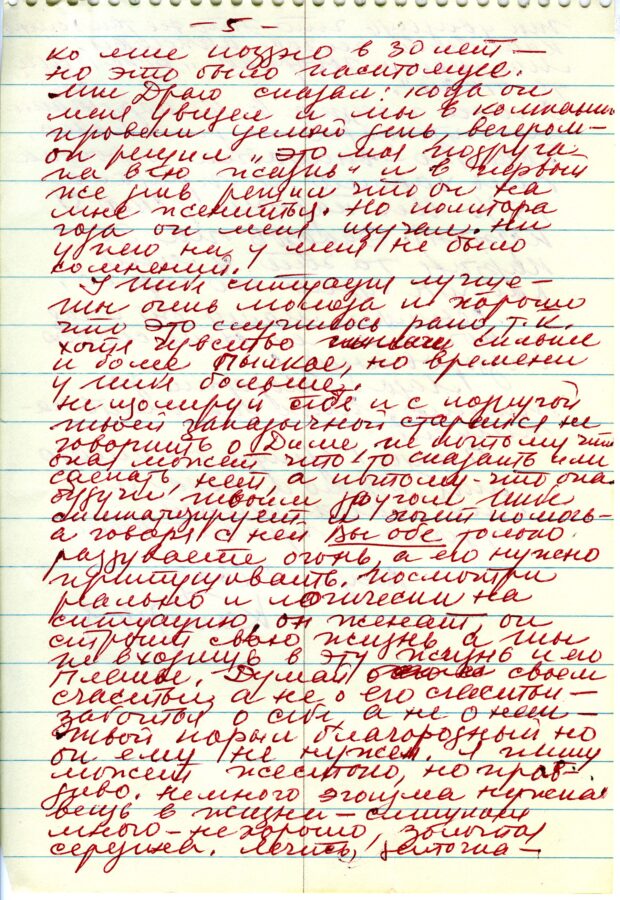 — 5 —
ко мне поздно в 30 лет —
но это было настоящее.
Мне Драго сказал: когда он
меня увидел и мы в компании
провели целой день, вечером —
он решил „это моя подруга
на всю жизнь" и в первый
же день решил что он на
мне женится. Но полтора
года он меня изучал. Ни
у него ни у меня не было
сомнений.
У тебя ситуация лучше —
ты очень молода и хорошо
что это случилось рано, т.к.
хотя чувство сильнее
и более пылкое, но времени
у тебя больше.
Не изолируй себя и с подругой
твоей закадычной старайся не
говорить о Диме не потому что
она может что-то сказать или
сделать, нет а потому-что она
будучи твоим другом тебе
симпатизирует и хочет помочь —
а говоря с ней Вы обе только
раздуваете огонь, а его нужно
притушивать. Посмотри
реально и логически на
ситуацию, он женат, он
строит свою жизнь а ты
не входишь в эту жизнь и его
планы. Думай о своем
счастьи, а не о его счастьи —
заботься о себе а не о нем —
твой порыв благородный но
он ему не нужен. Я пишу
может жестоко, но прав-
диво. Немного эгоизма нужная
вещь в жизни — слишком
много — не хорошо, золотая
середина.